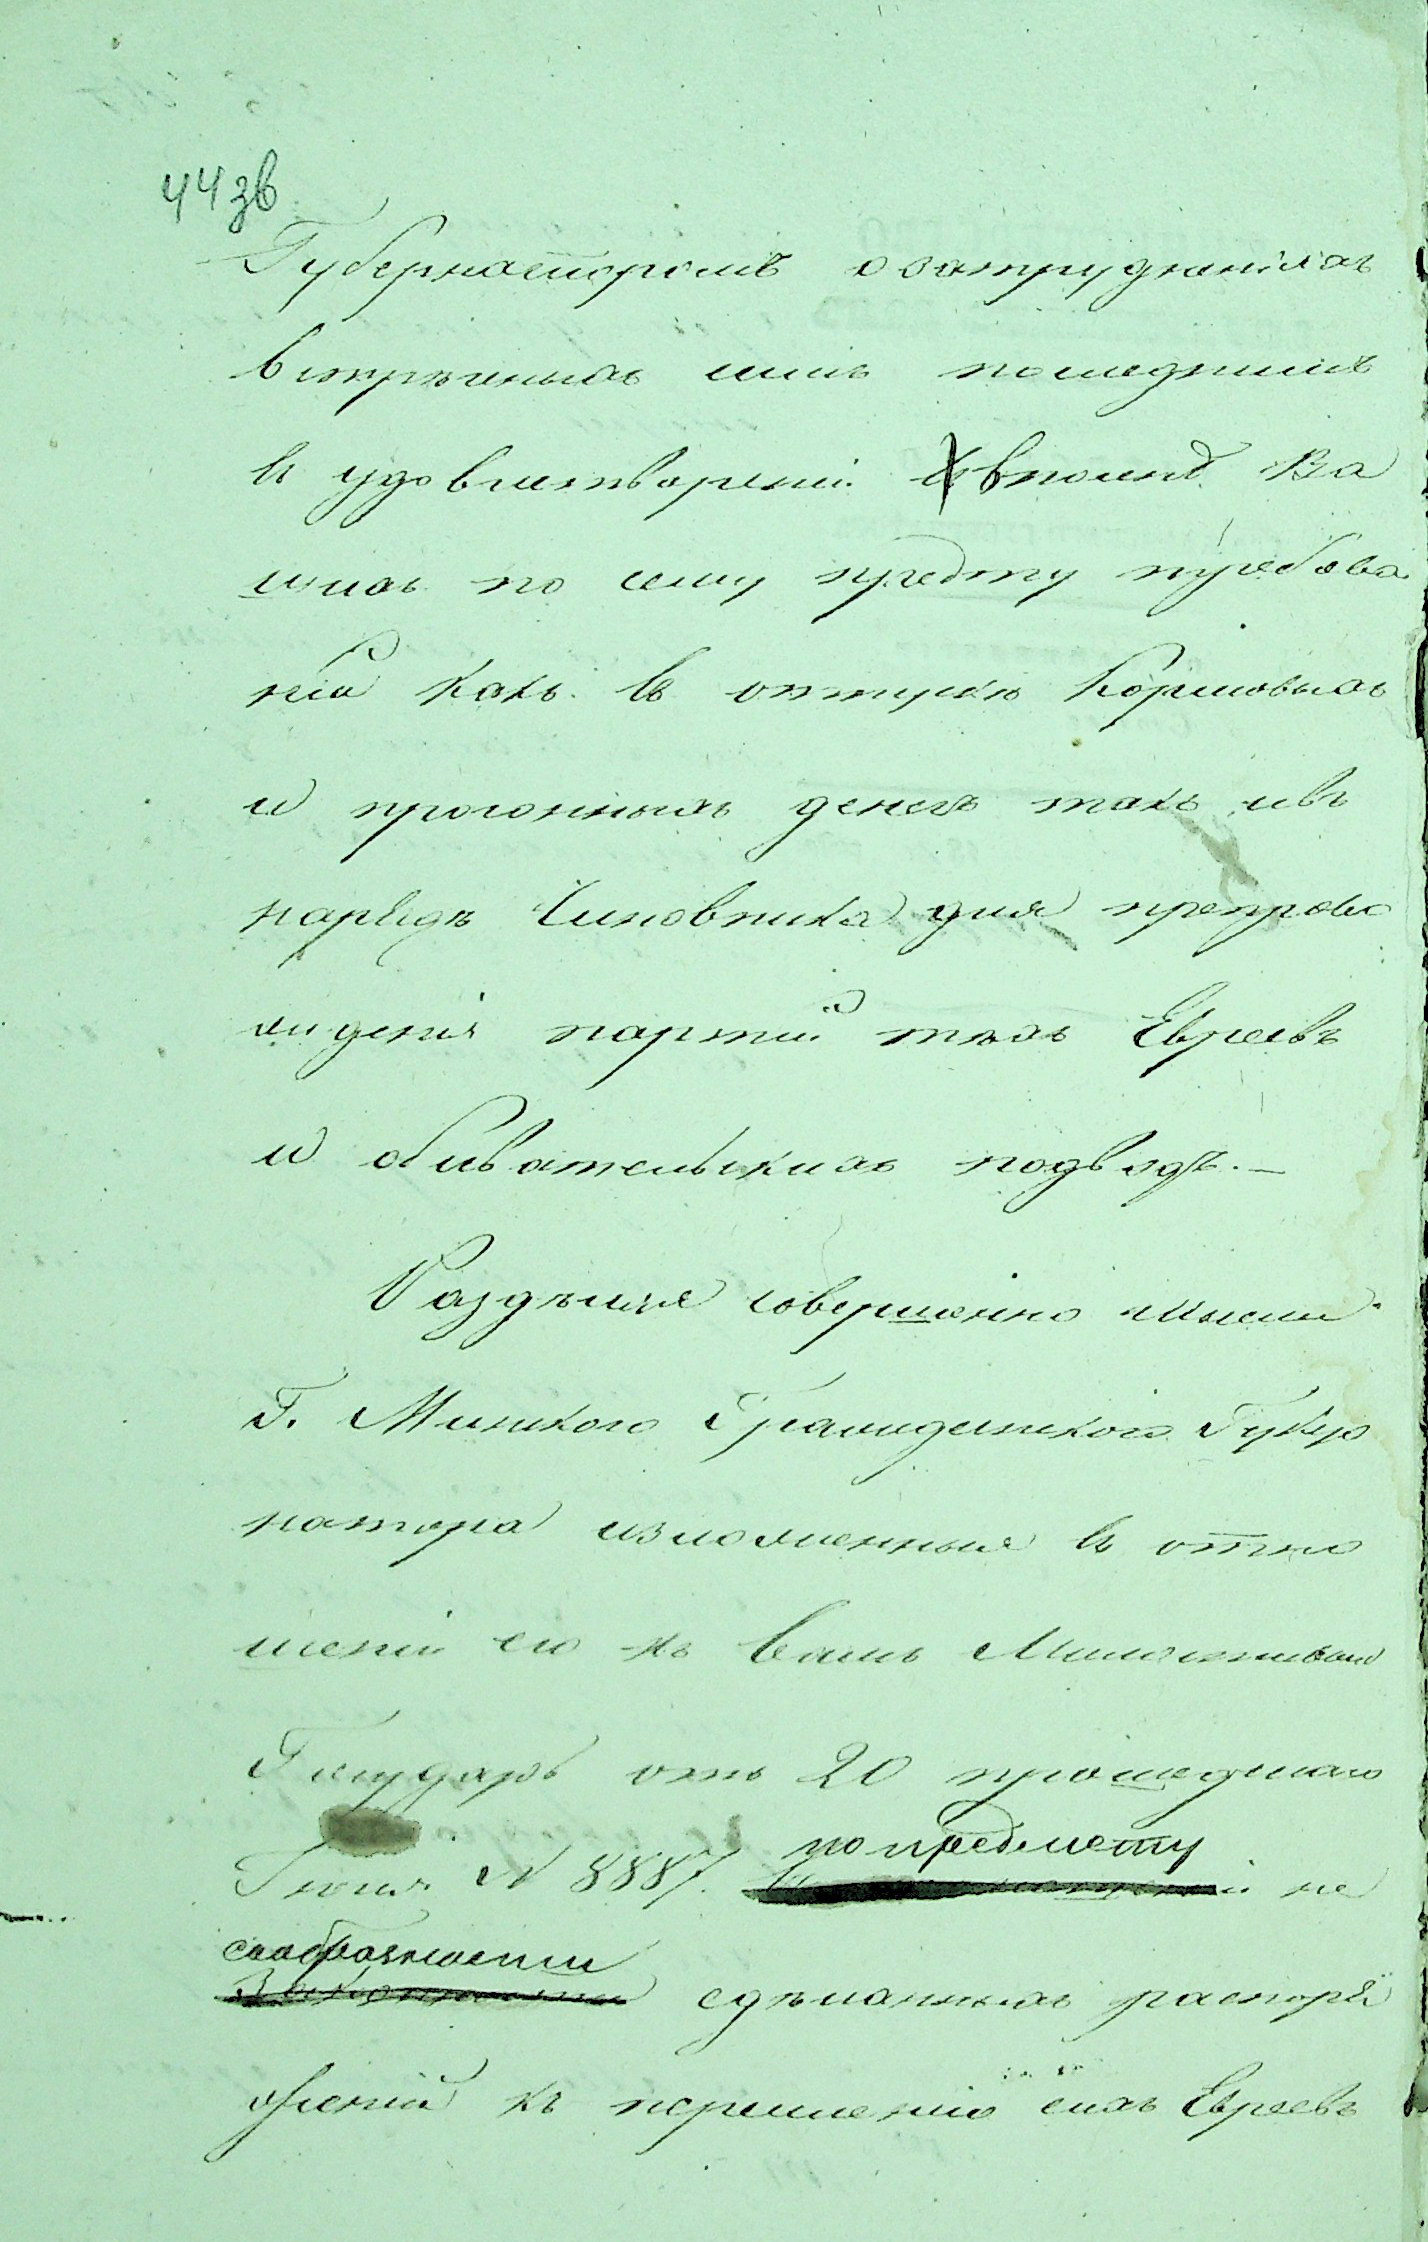 44 зв
Губернаторомъ о затрудненіяхъ
встрѣченныхъ симъ последнимъ
въ удовлетвореніи вполнѣ Ва
шихъ по сему предмту требова
ній какъ въ отпускѣ кормовыхъ
и прогонныхъ денегъ такъ и въ
нарядѣ Чиновника для препрово
жденія партій тѣхъ Евреевъ
и обывательскихъ подводъ. —
Раздѣляя совершенно мысли
Г. Минского Гражданского Губер
натора изложенныя въ отно
шеніи его къ Вамъ Милостивый
Государь отъ 20 прошедшаго
Іюня № 8887. по предмету не
сообразности сдѣланныхъ распоря
женій къ переселенію сихъ Евреевъ